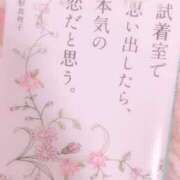 試着室で
思い出したら、
本気の
恋だと思う。